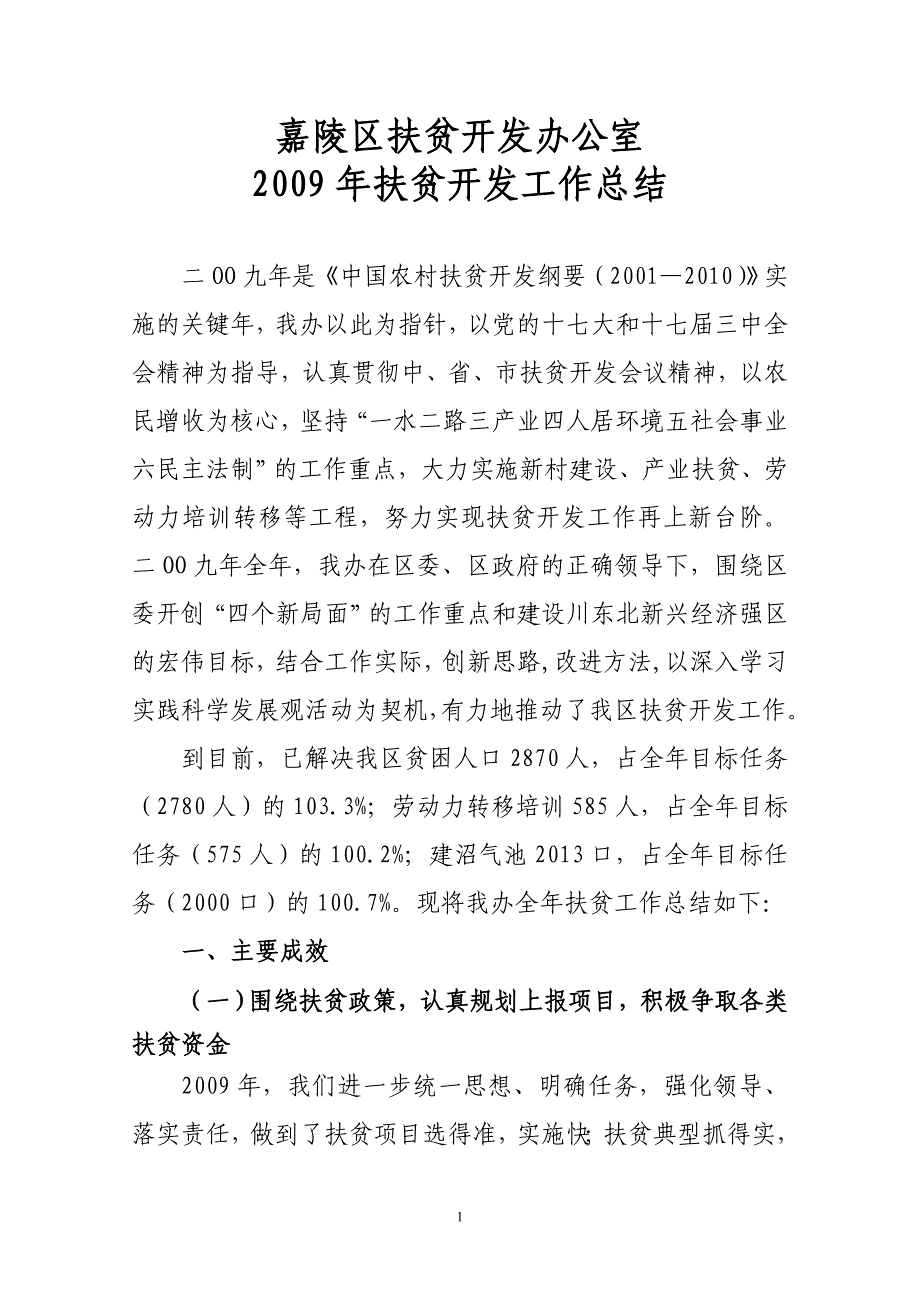 嘉陵区扶贫开发办公室
2009 年扶贫开发工作总结
二 00 九年是《中国农村扶贫开发纲要（2001—2010）》实
施的关键年，我办以此为指针，以党的十七大和十七届三中全
会精神为指导，认真贯彻中、省、市扶贫开发会议精神，以农
民增收为核心，坚持“一水二路三产业四人居环境五社会事业
六民主法制”的工作重点，大力实施新村建设、产业扶贫、劳
动力培训转移等工程，努力实现扶贫开发工作再上新台阶。
二 00 九年全年，我办在区委、区政府的正确领导下，围绕区
委开创“四个新局面”的工作重点和建设川东北新兴经济强区
的宏伟目标，结合工作实际，创新思路,改进方法,以深入学习
实践科学发展观活动为契机,有力地推动了我区扶贫开发工作。
到目前，已解决我区贫困人口 2870 人，占全年目标任务
（2780 人）的 103.3%；劳动力转移培训 585 人，占全年目标
任务（575 人）的 100.2%；建沼气池 2013 口，占全年目标任
务（2000 口）的 100.7%。现将我办全年扶贫工作总结如下：
一、主要成效
（一）围绕扶贫政策，认真规划上报项目，积极争取各类
扶贫资金
2009 年，我们进一步统一思想、明确任务，强化领导、
落实责任，做到了扶贫项目选得准，实施快；扶贫典型抓得实，
1